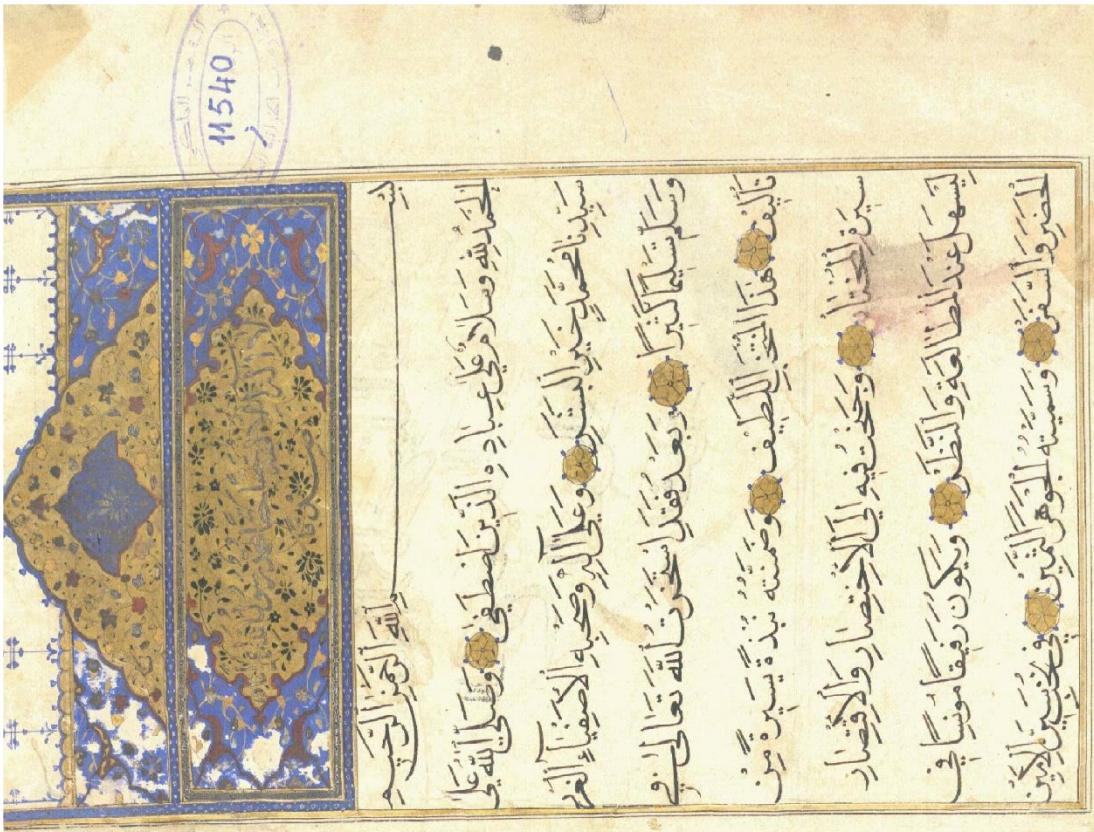 11540
بسم الله الرحمن الرحيم
الحمد لله وسلام على عباده الذين اصطفى وصلى الله على
سيدنا محمد خير البشر وعلى آله وصحبه الأصفياء الغرر
وسلم تسليما كثيرا وبعد فقد استخرت الله تعالى في
تأليف هذا المنتخب اللطيف وضمنته نبذة يسيرة من
سيرة المختار وجنحت فيه إلى الاختصار والاقتصار
ليسهل عند المطالعة والنظر ويكون رفيقا مونسا في
الحضر والسفر وسميته الجوهر الثمين في الأمين